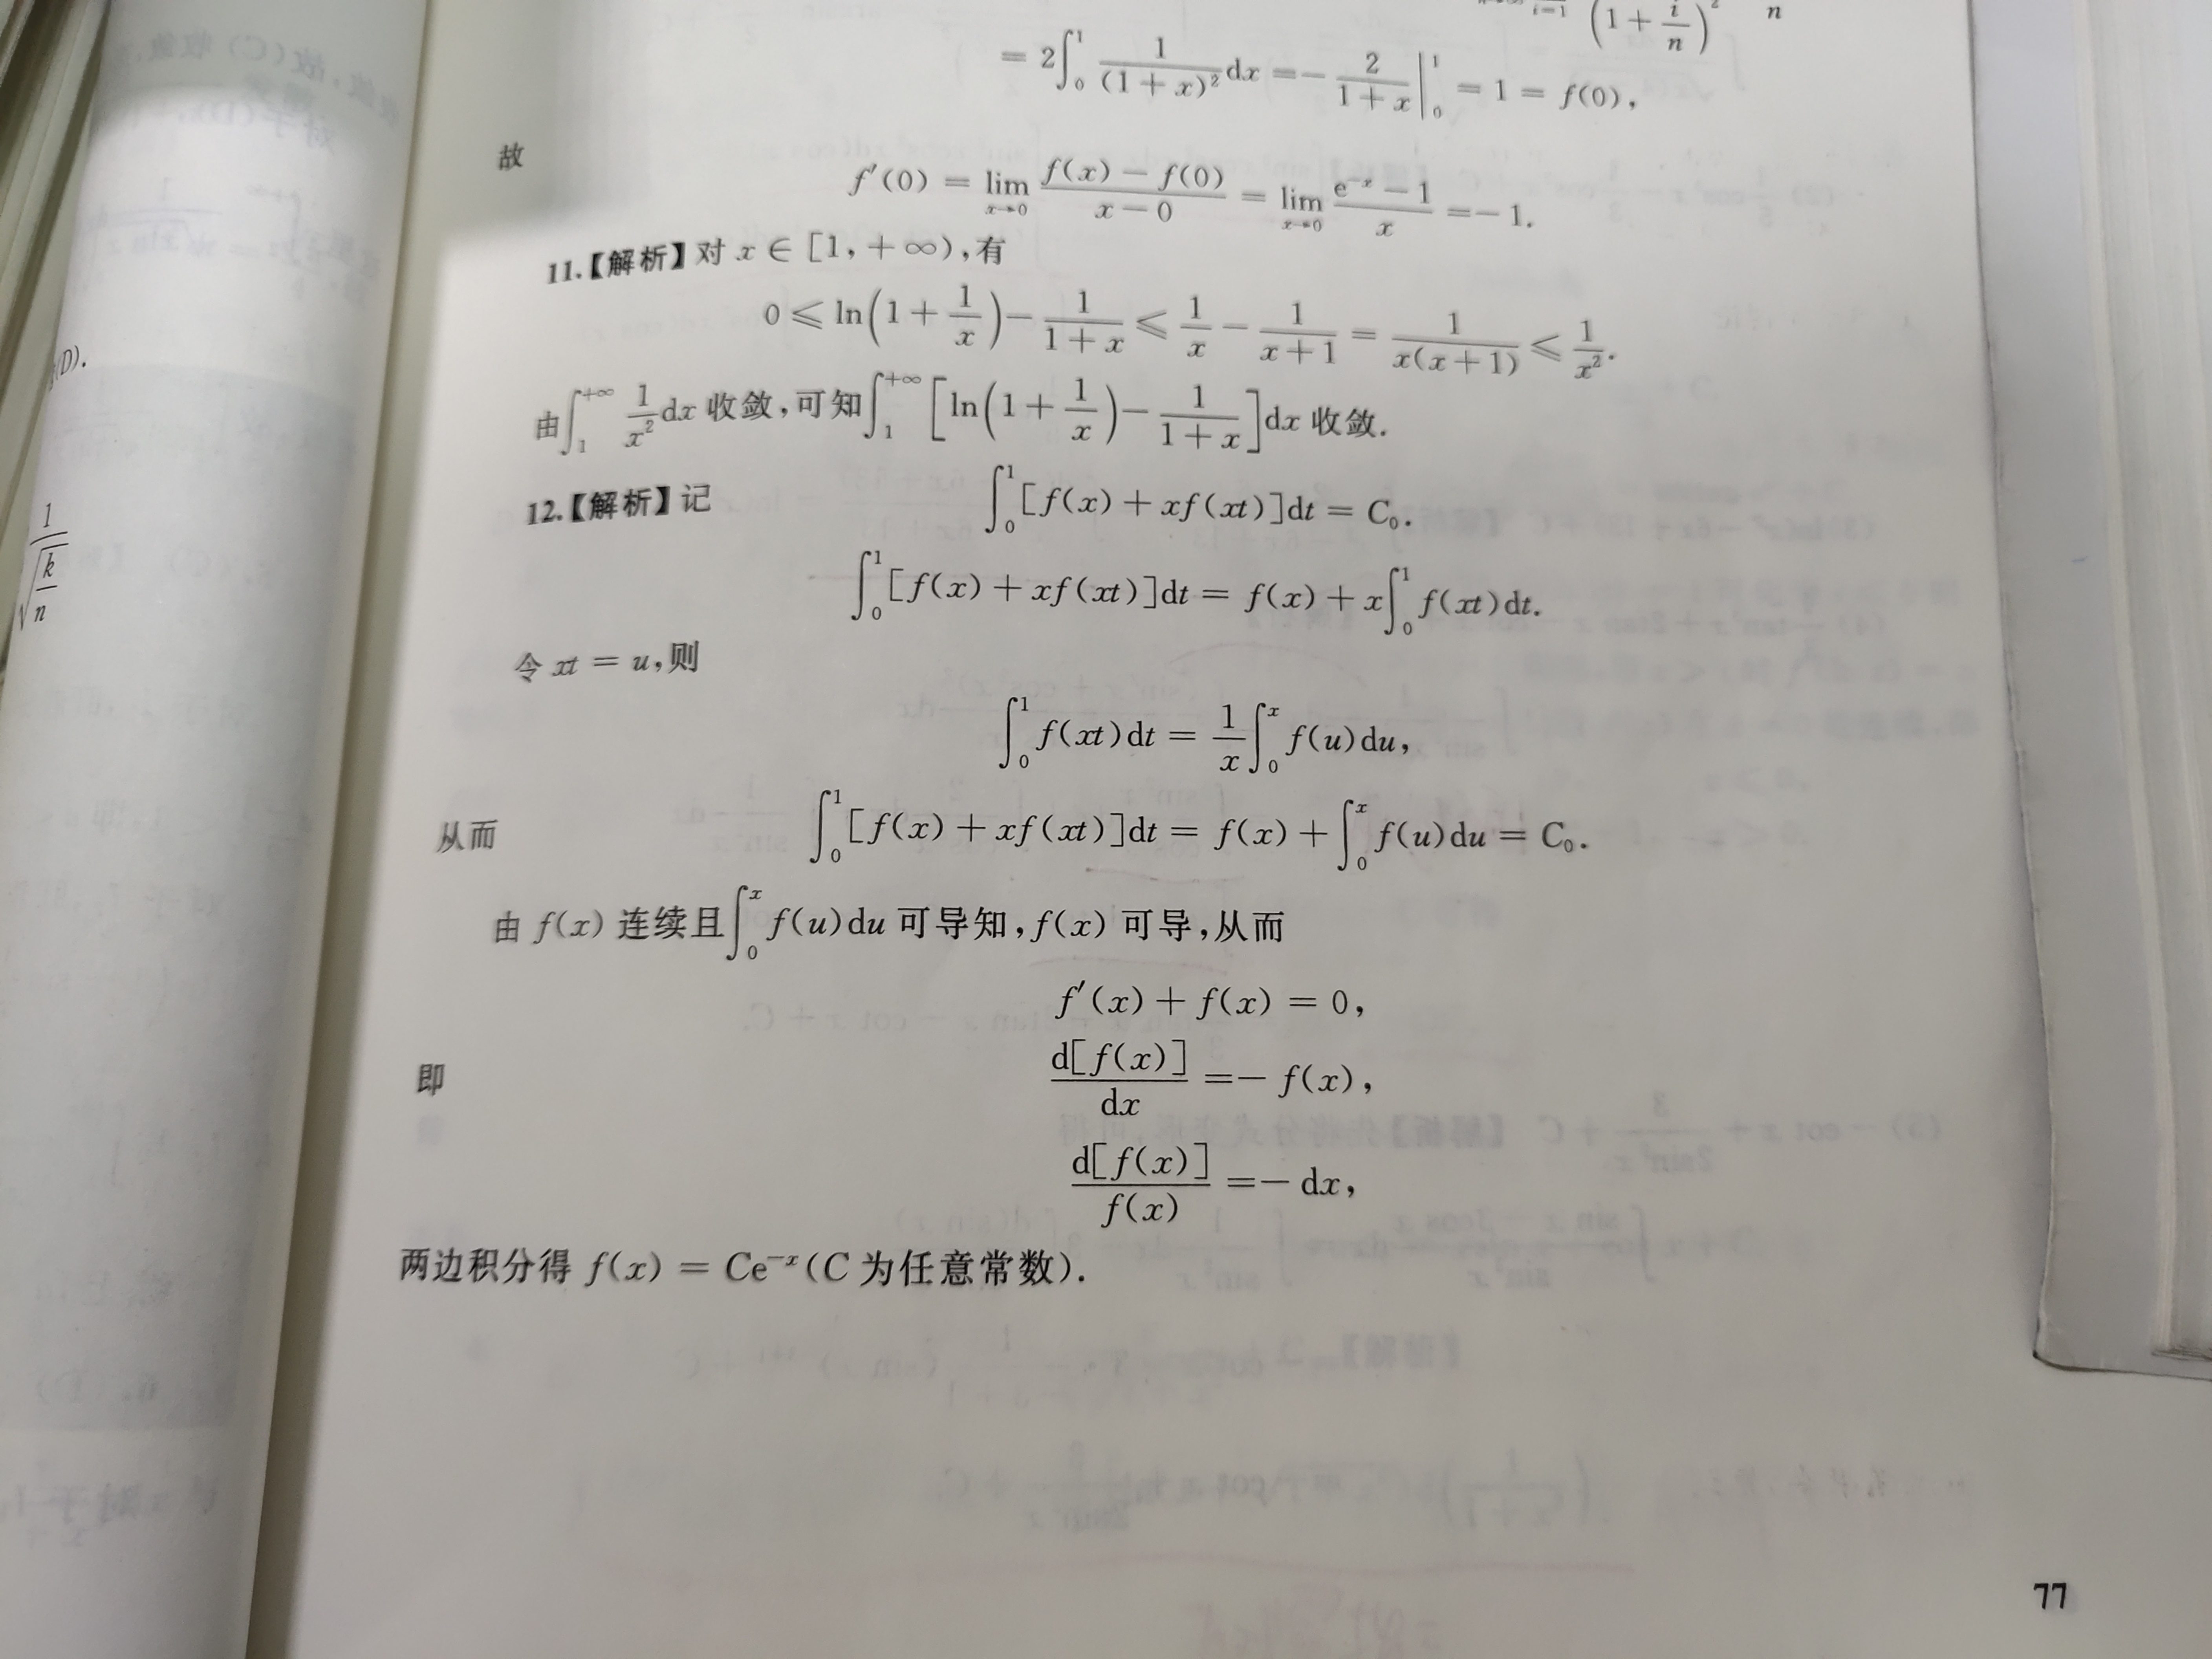 i=1 (1+i/n)² n
= 2∫₀¹ 1/(1+x)² dx = − 2/(1+x) |₀¹ = 1 = f(0),
故
f′(0) = lim_{x→0} (f(x) − f(0))/(x − 0) = lim_{x→0} (e⁻ˣ − 1)/x = − 1.
11.【解析】对 x ∈ [1, + ∞),有
0 ≤ ln(1 + 1/x) − 1/(1+x) ≤ 1/x − 1/(x+1) = 1/(x(x+1)) ≤ 1/x².
由∫₁^{+∞} 1/x² dx 收敛,可知∫₁^{+∞} [ln(1 + 1/x) − 1/(1+x)]dx 收敛.
12.【解析】记 ∫₀¹[f(x) + xf(xt)]dt = C₀.
∫₀¹[f(x) + xf(xt)]dt = f(x) + x∫₀¹ f(xt)dt.
令 xt = u,则
∫₀¹ f(xt)dt = 1/x ∫₀ˣ f(u)du,
从而 ∫₀¹[f(x) + xf(xt)]dt = f(x) + ∫₀ˣ f(u)du = C₀.
由 f(x) 连续且∫₀ˣ f(u)du 可导知,f(x) 可导,从而
f′(x) + f(x) = 0,
即 d[f(x)]/dx = − f(x),
d[f(x)]/f(x) = − dx,
两边积分得 f(x) = Ce⁻ˣ(C 为任意常数).
77
(D).
1/√(k/n)